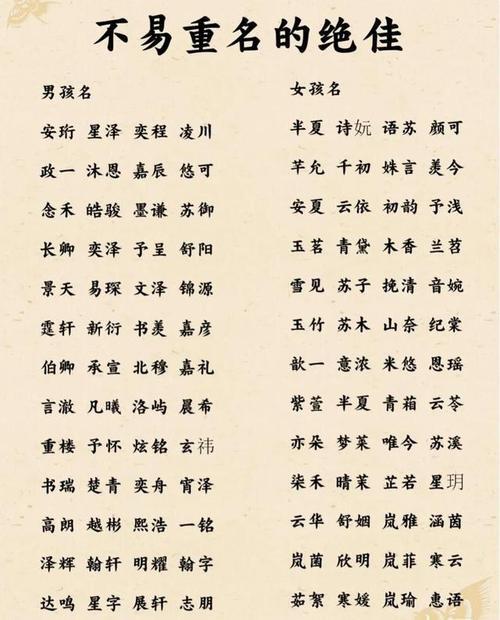 不易重名的绝佳
男孩名
安珩 星泽 奕程 凌川
政一 沐恩 嘉辰 悠可
念禾 皓骏 墨谦 苏御
长卿 奕泽 予呈 舒阳
景天 易琛 文泽 锦源
霆轩 新衍 书羡 嘉彦
伯卿 承宣 北穆 嘉礼
言澈 凡曦 洛屿 晨希
重楼 予怀 炫铭 玄祎
书瑞 楚青 奕舟 宵泽
高朗 越彬 熙浩 一铭
泽辉 翰轩 明耀 翰宇
达鸣 星宇 展轩 志朋
女孩名
半夏 诗妧 语苏 颜可
芊允 千初 姝言 羡今
安夏 云依 初韵 予浅
玉茗 青黛 木香 兰苕
雪见 苏子 挽清 音婉
玉竹 苏木 山奈 纪棠
歆一 意浓 米悠 恩瑶
紫萱 半夏 青葙 云苓
亦朵 梦茉 唯今 苏溪
柒禾 晴茉 芷若 星玥
云华 舒姻 岚雅 涵茵
岚茵 欣明 岚菲 寒云
茹絮 寒媛 岚瑜 惠语